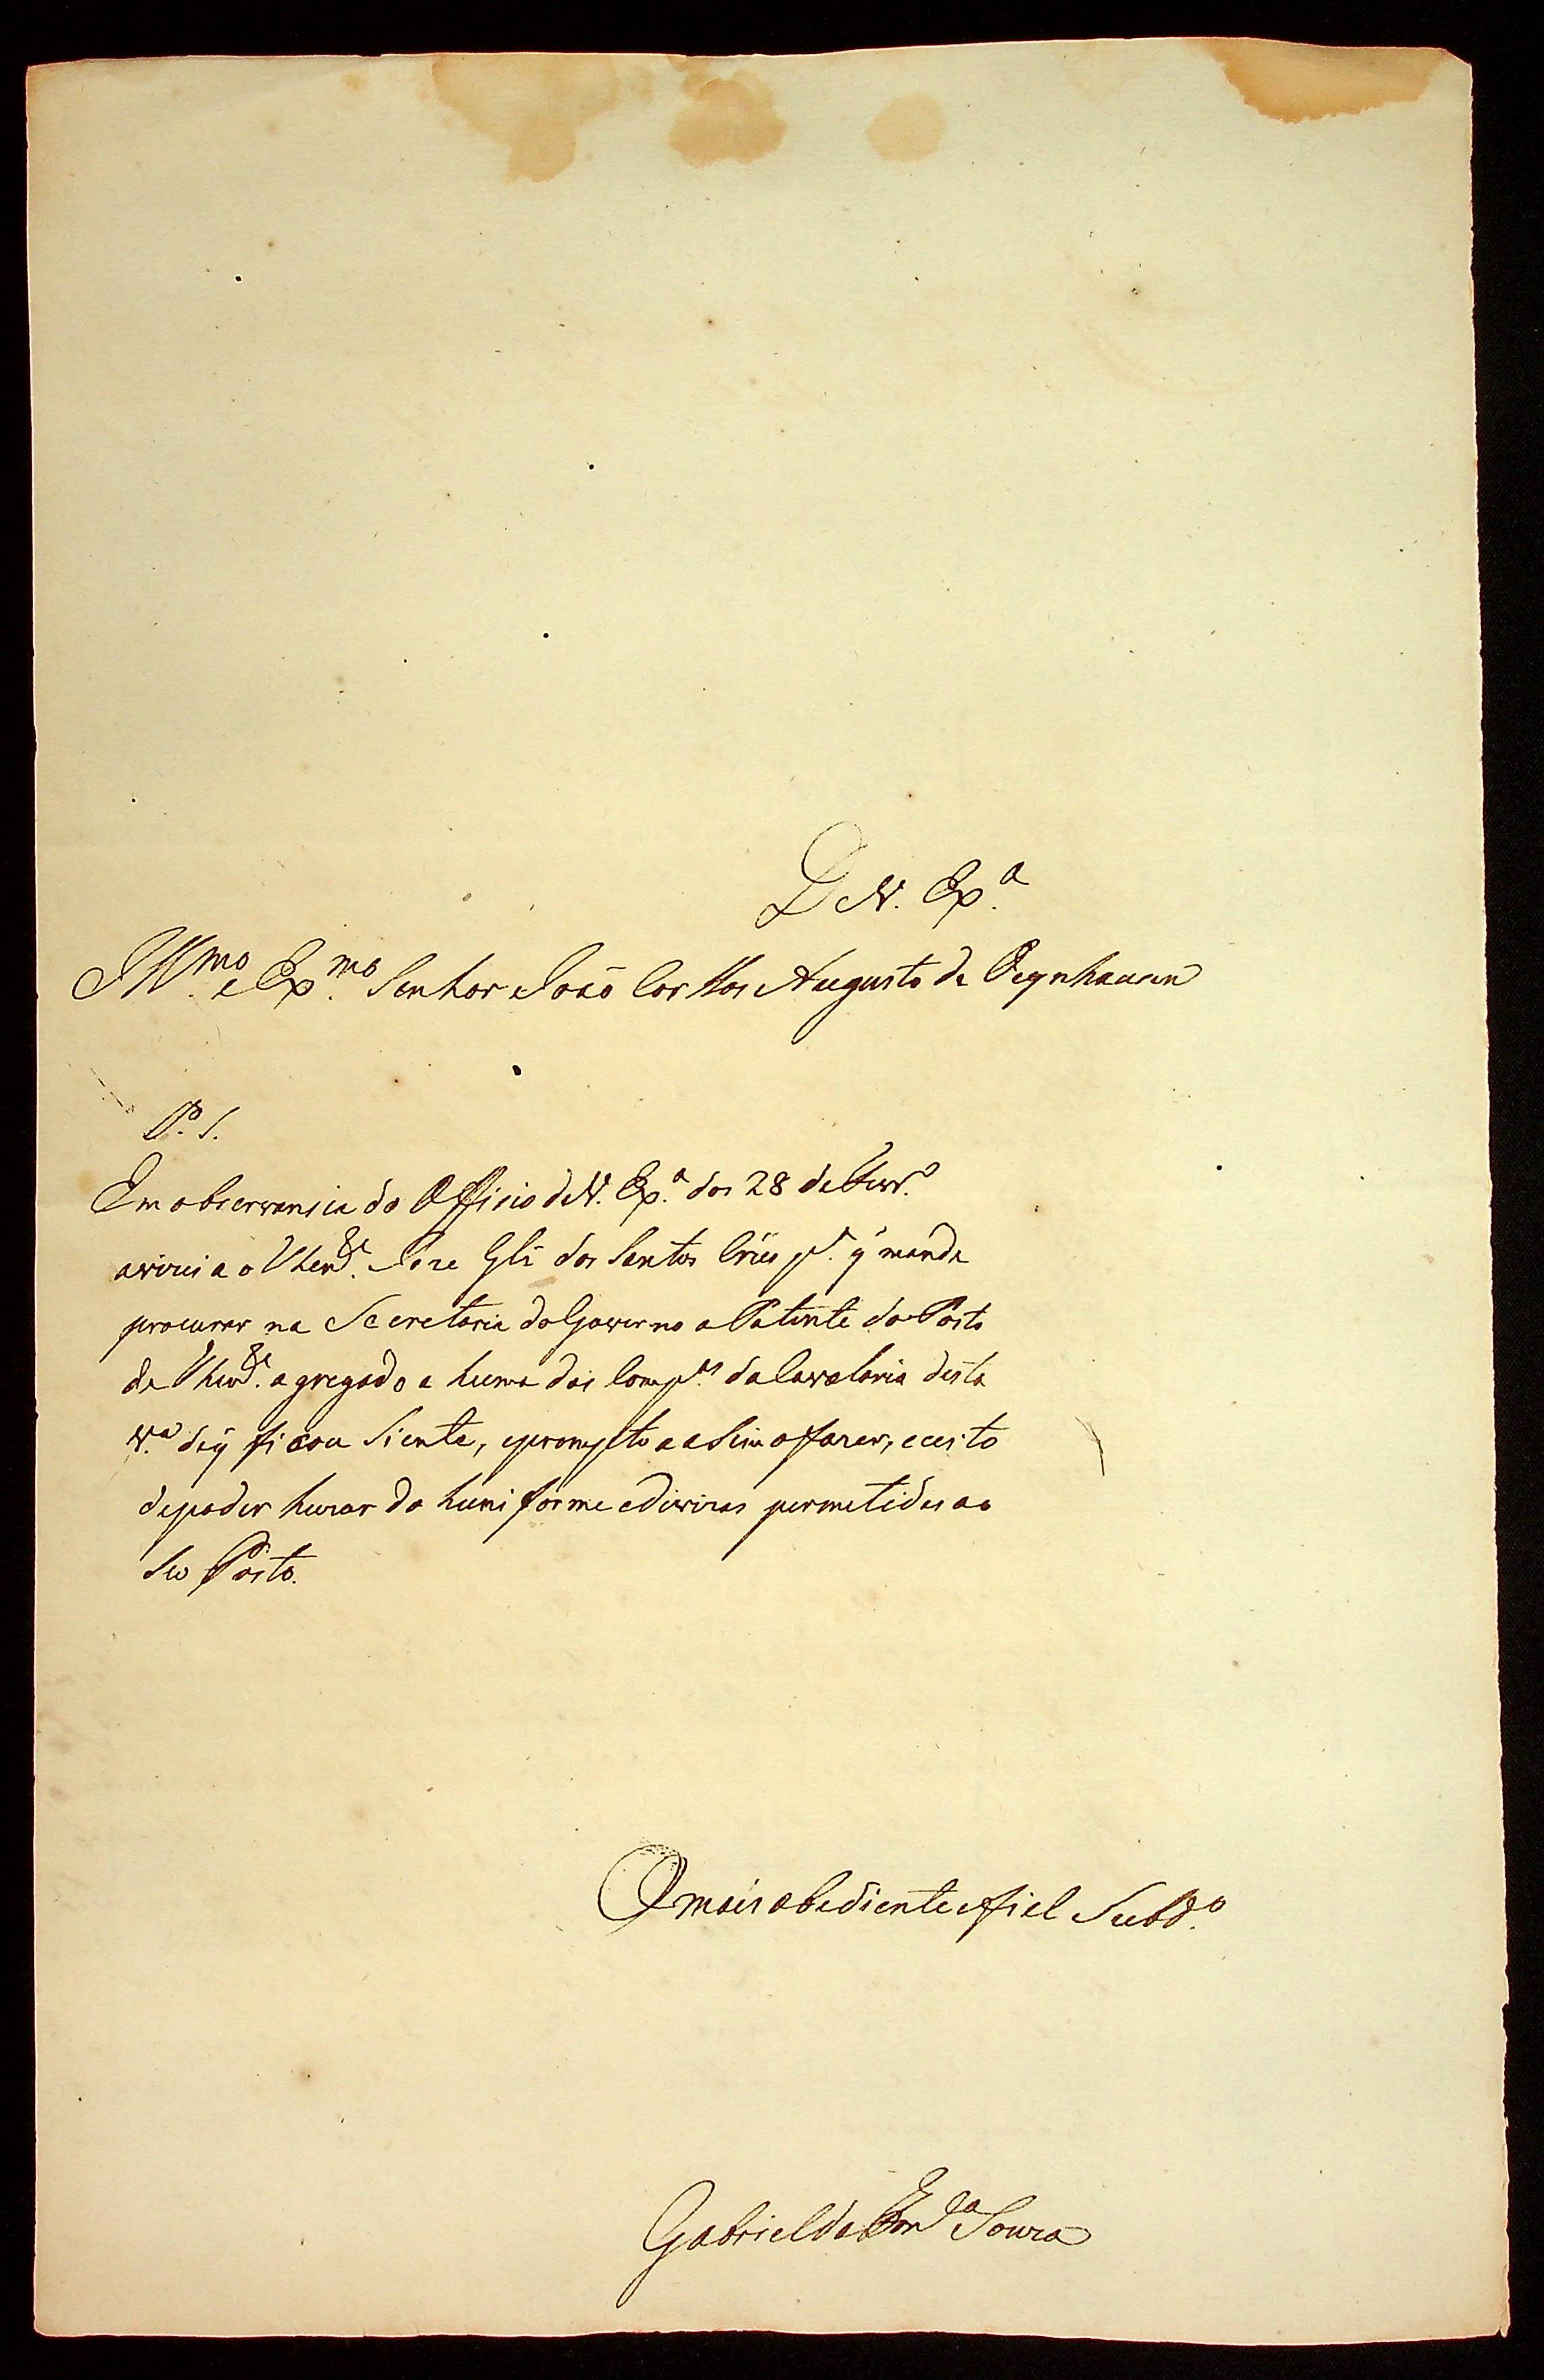 D V. Ex.ª
Ill.mo e Ex.mo Senhor João Carllos Augusto de Oeynhausen
P. S.
Em observansia do Officio de V. Ex.ª dos 28 de Fevr.º
avizei ao Then.de Joze Glz dos Santos Cruz p.ª q̃ mande
procurar na Secretaria do Governo a Patente do Posto
de Then.de agregado a huma das Comp.as da Cavalaria desta
V.ª de q̃ ficou Siente, e prompto a aSim o fazer, e
de poder huzar do huniforme e Divizas permetidas ao
Seo Posto.
O mais obediente e fiel Subd.º
Gabriel da Souza